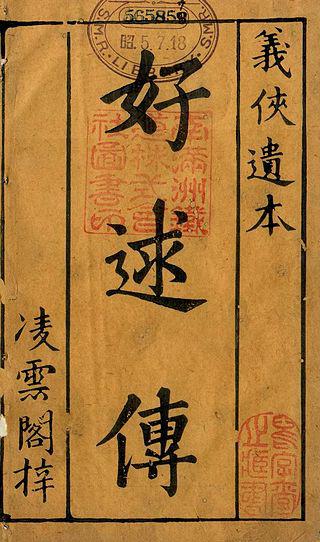 昭5.7.18
義俠遺本
好逑傳
凌雲閣梓
南滿洲鐵
道株式會
社圖書印